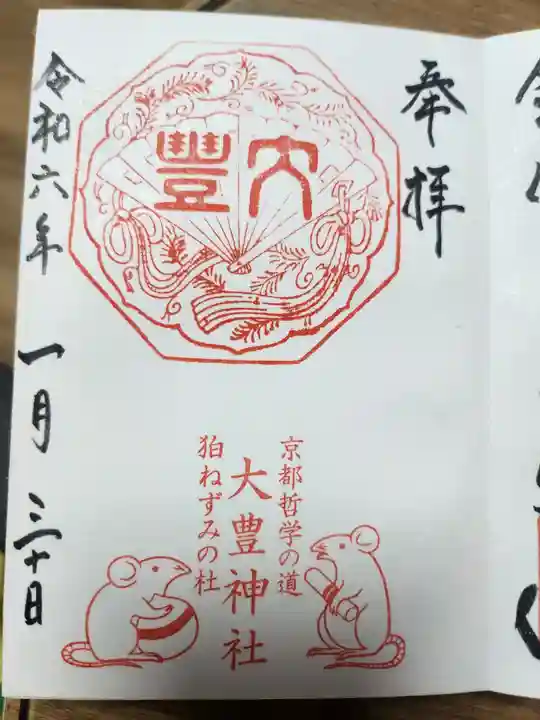 奉拝
大豐
京都哲学の道
大豊神社
狛ねずみの社
令和六年
一月三十日